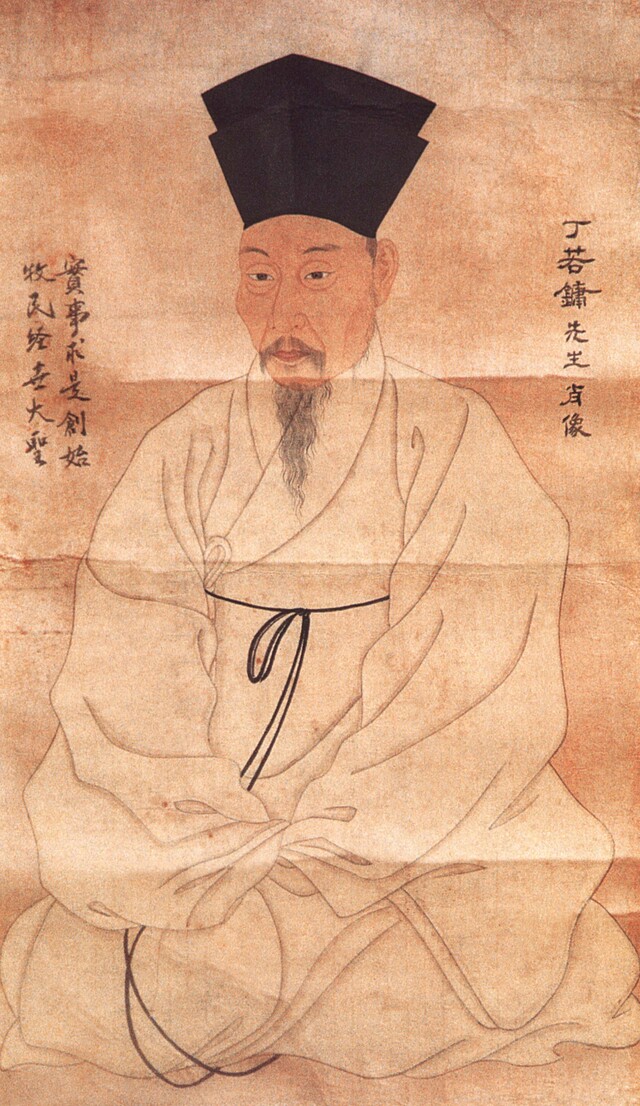 丁若鏞先生肖像
實事求是創始
牧民经世大聖